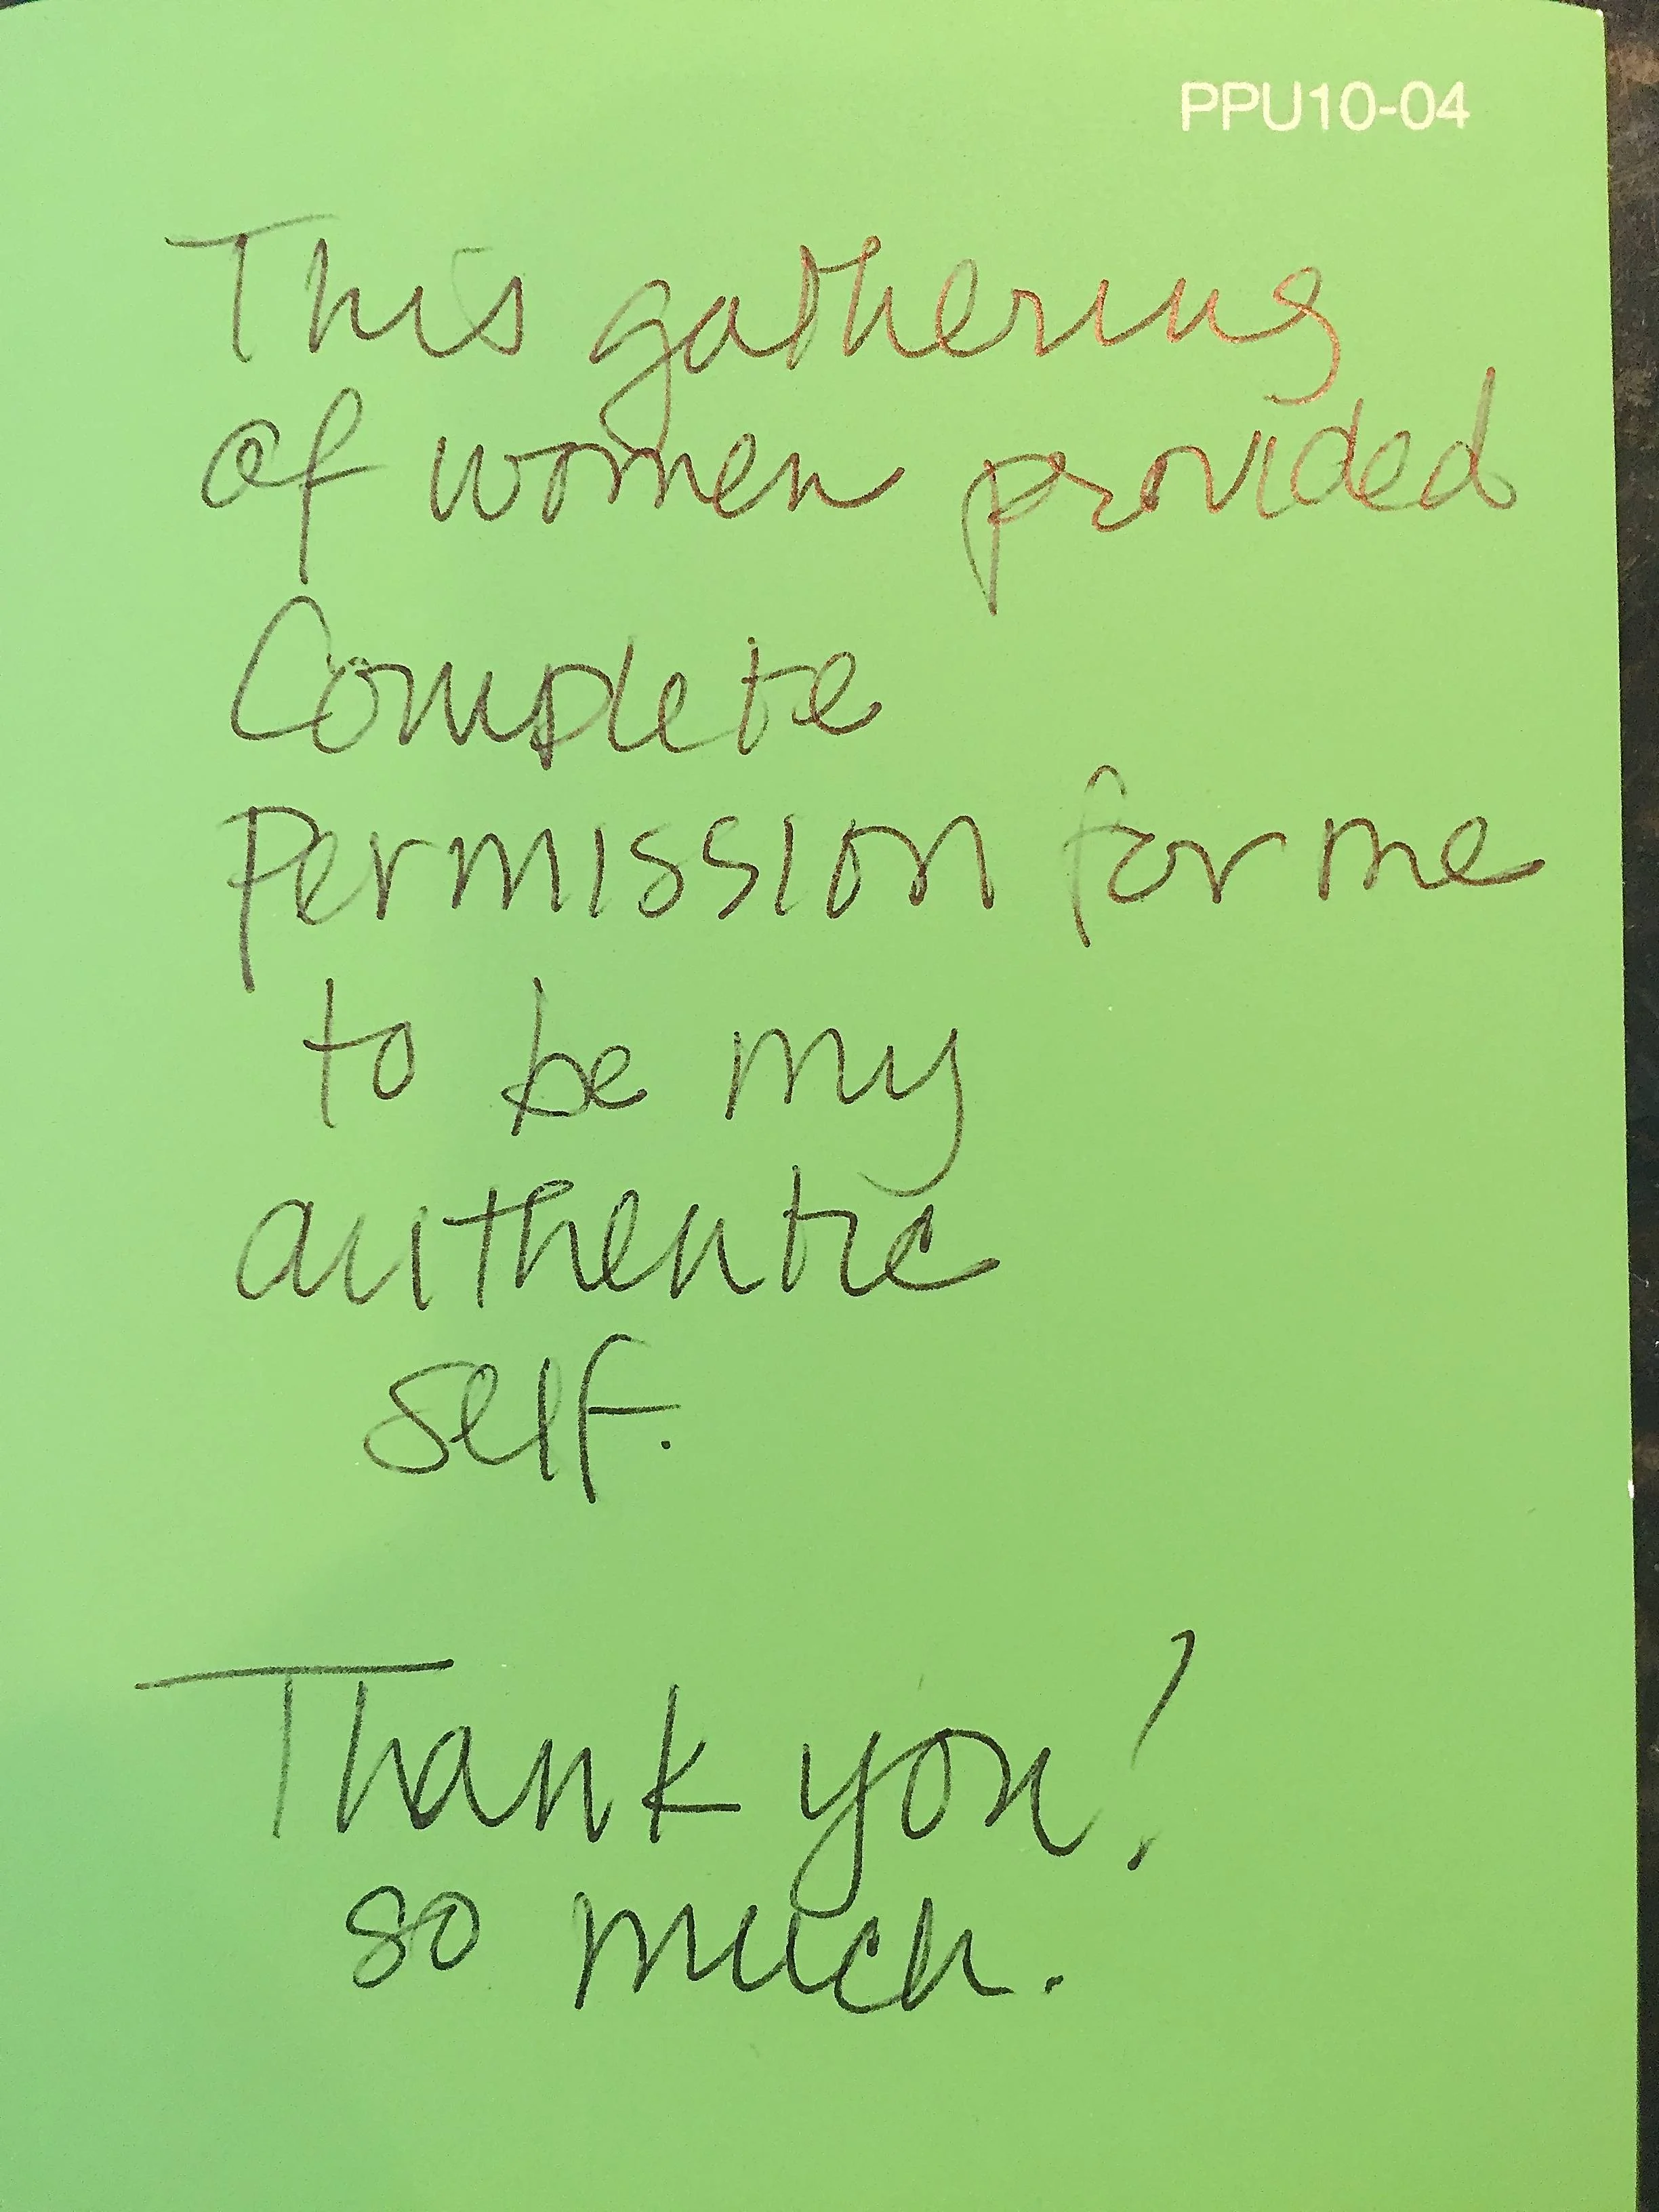 PPU10-04
This gathering
of women provided
Complete
permission for me
to be my
authentic
self.
Thank you!
so much.